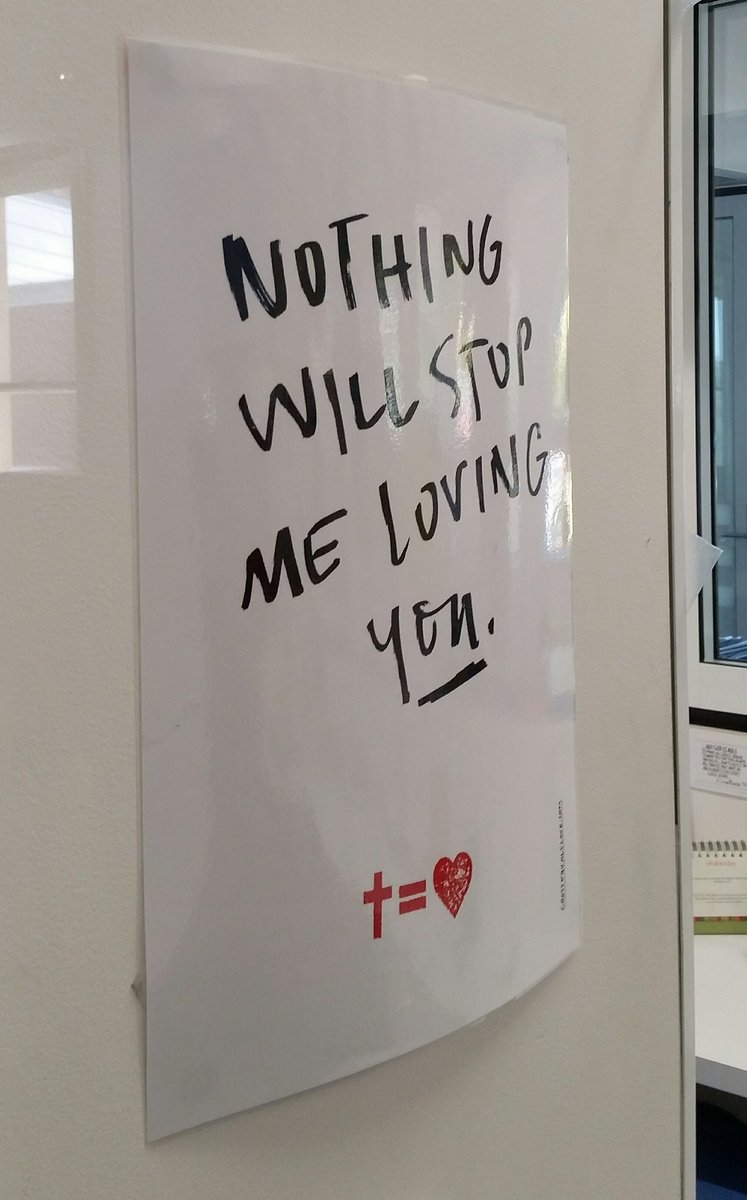 NOTHING
WILL STOP
ME LOVING
YOU.
†=♥